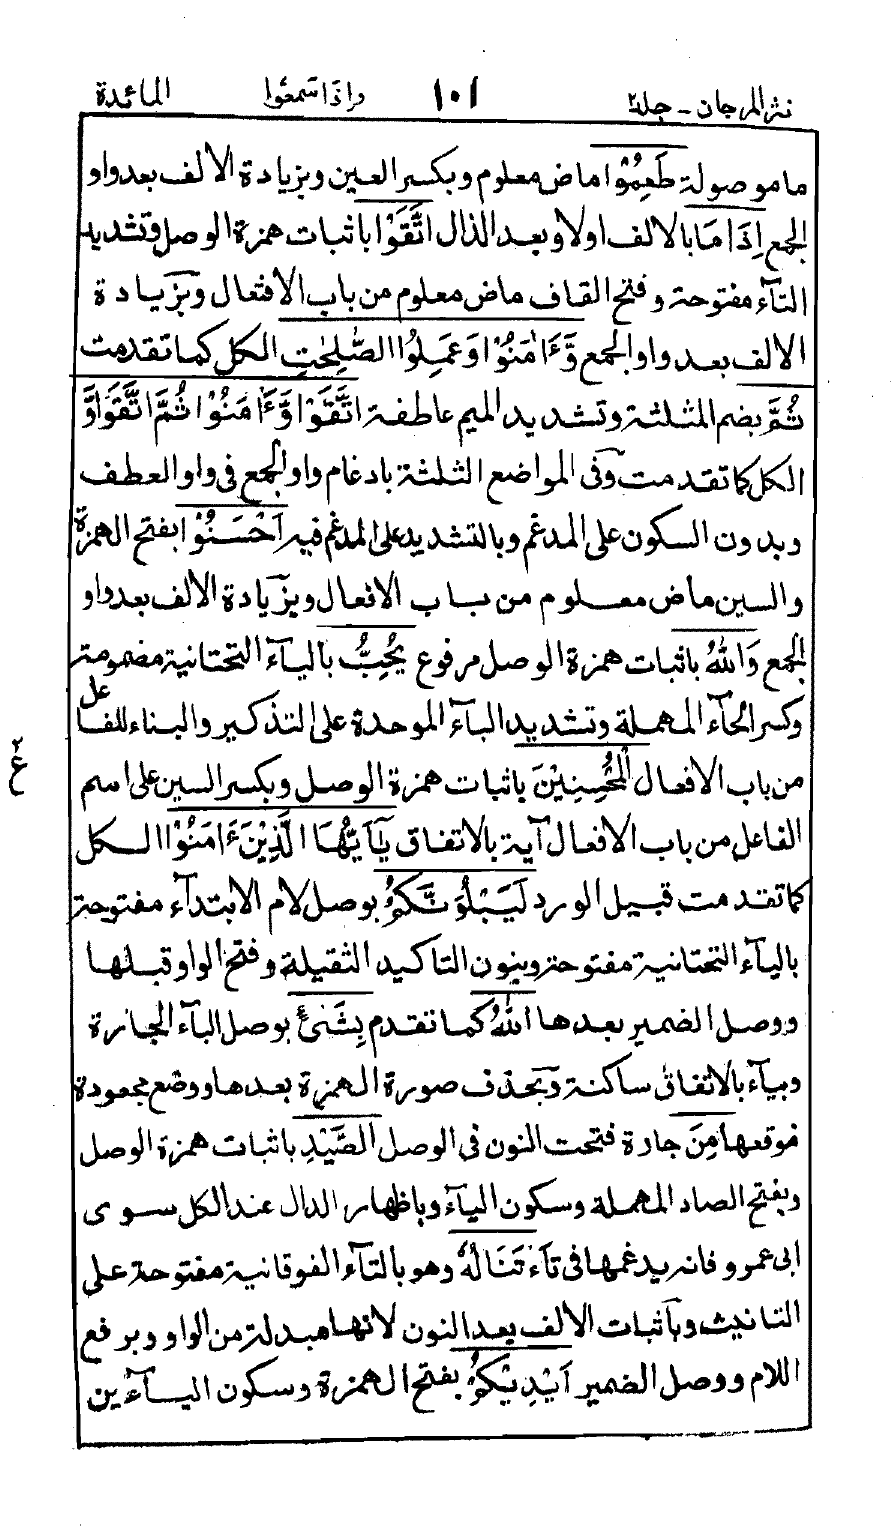 نثر المرجان - جلد٢ ١٠١ واذا سمعوا المائدة
ما موصولة طَعِمُوْا ماض معلوم وبكسر العين وبزيادة الالف بعد واو
الجمع اِذَا مَا بالالف اولا وبعد الذال اتَّقَوْا باثبات همزة الوصل وتشديد
التآء مفتوحة وفتح القاف ماض معلوم من باب الافتعال وبزيادة
الالف بعد واو الجمع وَّءَامَنُوْا وَعَمِلُوا الصّٰلِحٰتِ الكل كما تقدمت
ثُمَّ بضم المثلثة وتشديد الميم عاطفة اتَّقَوْا وَّءَامَنُوْا ثُمَّ اتَّقَوْا وَّ
الكل كما تقدمت وفى المواضع الثلثة بادغام واو الجمع فى واو العطف
وبدون السكون على المدغم وبالتشديد على المدغم فيه اَحْسَنُوْا بفتح الهمزة
والسين ماض معلوم من باب الافعال وبزيادة الالف بعد واو
الجمع وَاللّٰهُ باثبات همزة الوصل مرفوع يُحِبُّ باليآء التحتانية مضمومة
وكسر الحآء المهملة وتشديد البآء الموحدة على التذكير والبناء للفاعل
من باب الافعال الْمُحْسِنِيْنَ باثبات همزة الوصل وبكسر السين على اسم
ع
الفاعل من باب الافعال آية بالاتفاق يٰٓاَيُّهَا الَّذِيْنَ ءَامَنُوْا الكل
كما تقدمت قبيل الورد لَيَبْلُوَنَّكُمُ بوصل لام الابتدآء مفتوحة
باليآء التحتانية مفتوحة وبنون التاكيد الثقيلة وفتح الواو قبلها
ووصل الضمير بعدها اللّٰهُ كما تقدم بِشَىْءٍ بوصل البآء الجارة
وبيآء بالاتفاق ساكنة وبحذف صورة الهمزة بعدها ووضع مجعودة
موقعها مِنَ جارة فتحت النون فى الوصل الصَّيْدِ باثبات همزة الوصل
وبفتح الصاد المهملة وسكون اليآء وباظهار الدال عند الكل سوى
ابى عمرو فانه يدغمها فى تآء تَنَالُهٗ وهو بالتآء الفوقانية مفتوحة على
التانيث وباثبات الالف بعد النون لانها مبدلة من الواو وبرفع
اللام ووصل الضمير اَيْدِيْكُمْ بفتح الهمزة وسكون اليآءين